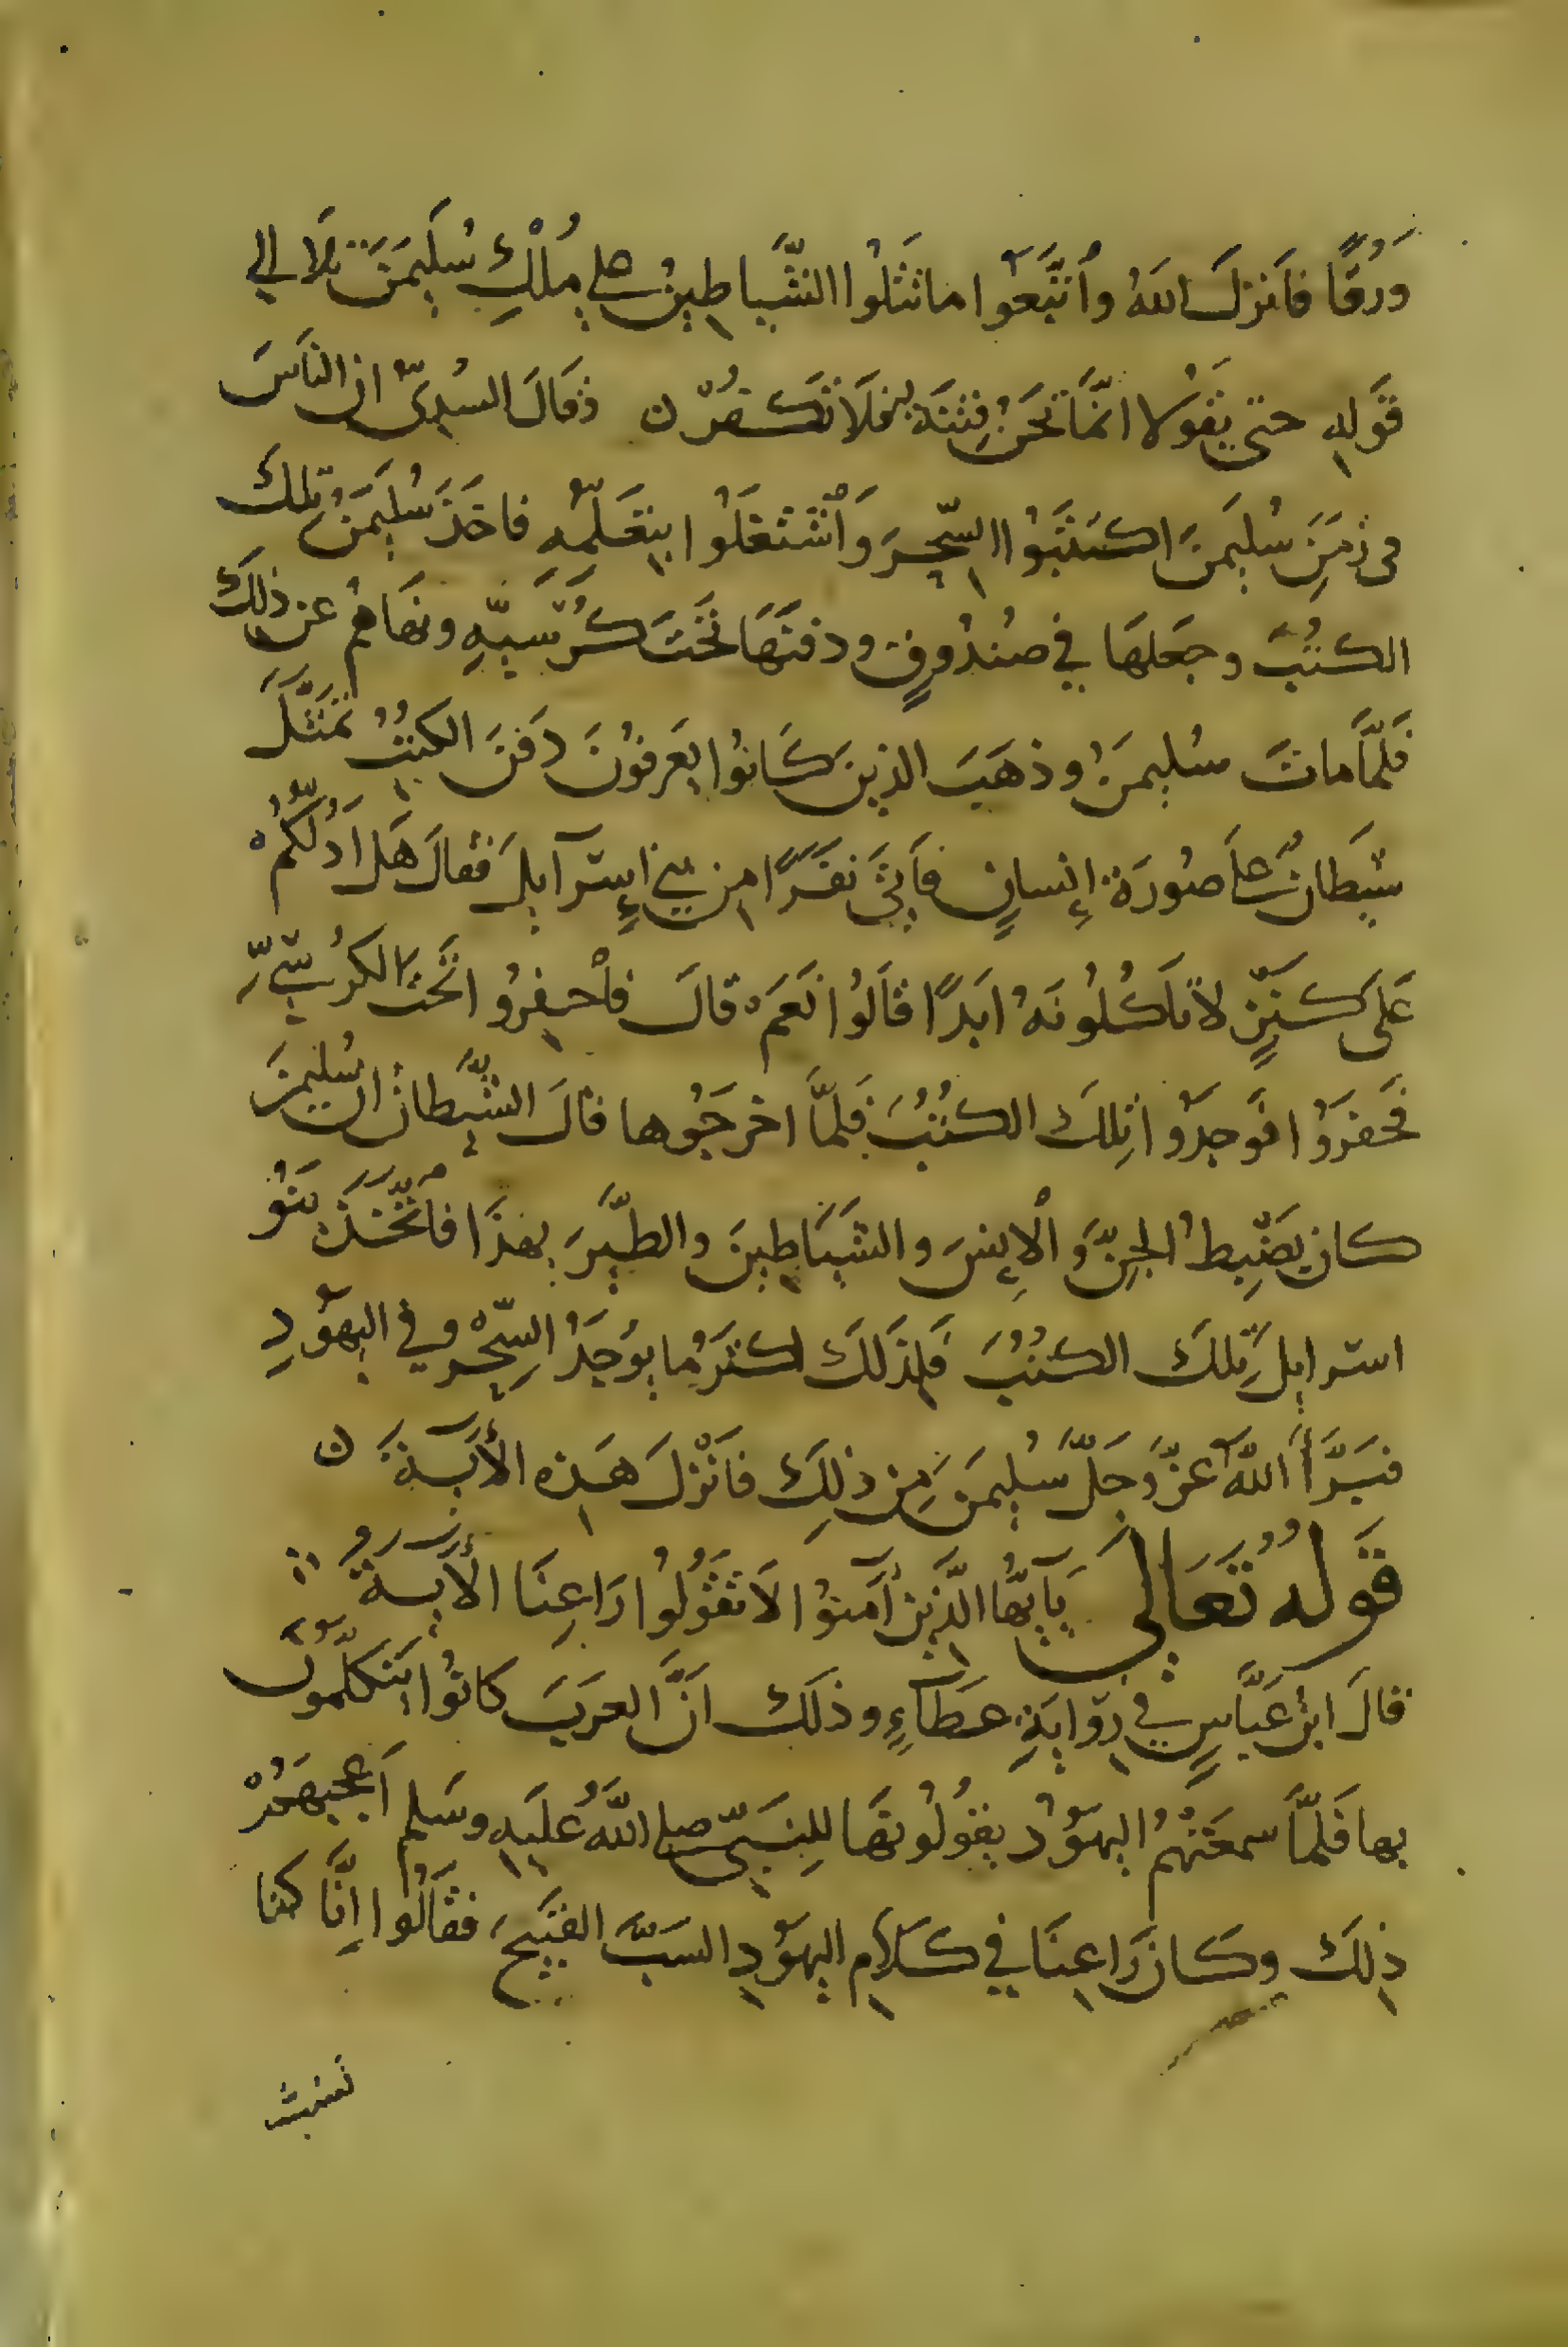 وَرُقًا فَأَنزلَ اللهُ وأتَّبَعُوا ما تَتْلُوا الشَّياطِينُ على مُلْكِ سُليمَنَ تلا الي
قَولِهِ حتى يقَوُلا انَّمَا نَحنُ فِتْنَة فَلَا تَكفُرْ ن وقَالَ السُدِيّ ان الناسَ
في زمَنِ سُليمَنَ اكتَتَبُوا السِّحرَ وَأشْتَغَلُوا بِتَعَلّمِهِ فاخذَ سُليمَنُ تِلكَ
الكتُبَ وجعَلهَا في صندُوقٍ ودفنَهَا تَحْتَ كُرسيّهِ ونهَاهُم عن ذلكَ
فَلمَّا ماتَ سُليمنُ وذهَبَ الذينَ كَانُوا يَعرفُونَ دَفنَ الكتبِ تَمثَّلَ
شَيطَانٌ علَى صُورَة إِنسانٍ فَأَتى نَفَرًا مِن بني إِسرآيلَ فقالَ هَل ادُلّكُمْ
عَلى كَنزٍ لا تاكُلُونَهُ ابَدًا قالُوا نَعَمْ قالَ فاْحفِرُوا تَحْتَ الكرُسيِّ
فَحفَرَوُا فَوجَدُوا تِلكَ الكتُبَ فلمَّا اخرجَوُها قالَ الشَّيطانُ ان سُليمنَ
كان يَضبِطُ الجِنّ وَ الْإِنسَ والشَيَاطِينَ والطّيرَ بهذَا فاتَّخَذَ بَنُو
اسرايلَ تِلكَ الكتُبَ فَلِذَلكَ اكثَرُ ما يوُجَدُ السِّحْر وفي اليهَوُدِ
فبَرَّأَ اللهُ عزّ وَجَلّ سُليمَنَ مِن ذلِكَ فأنْزلَ هَذه الأيَةَ ن
قَولُهُ تَعَالَى يَآيهُّا الَّذِينَ آمنوُا لاَ تَقُولُوا رَاعِنَا الأيَة
قالَ ابنُ عَبَّاسٍ في رِوَايَةِ عَطَآءٍ وذلَك انَّ العرَبَ كانُوا يَتَكلَّموُنَ
بها فَلمَّا سمعَتْهُمُ اليهَوُدُ يقُولُونَها للِنبَيّ صلى اللهُ عليَهِ وسَلم اَعجبهَمُرْ
ذِلكَ وكَان رَاعِنَا في كَلَامِ اليهَوُدِ السَبَّ القَبيحَ فقَالُوا اِنَّا كنا
نسبت